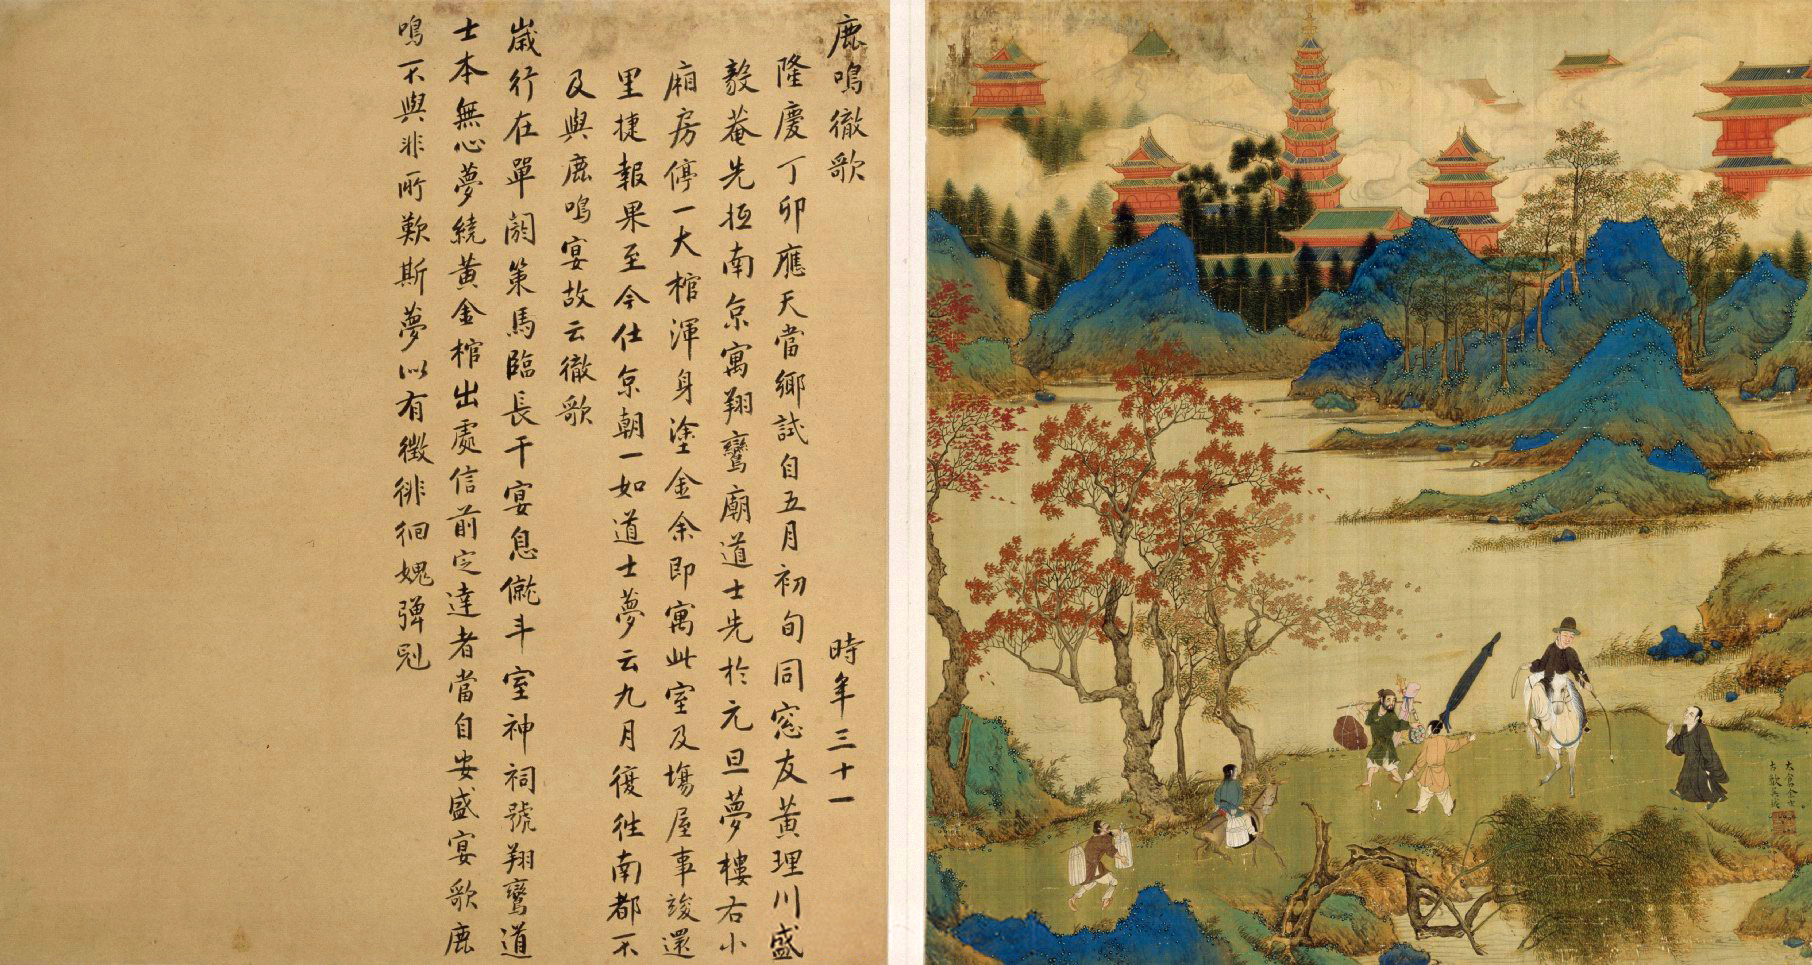 鹿鳴徹歌 時年三十一
隆慶丁卯應天當鄉試自五月初旬同窓友黃理川盛
毅菴先抵南京寓翔鸞廟道士先於元旦夢樓右小
廂房停一大棺渾身塗金余即寓此室及塲屋事竣還
里捷報果至今仕京朝一如道士夢云九月復徃南都不
及與鹿鳴宴故云徹歌
歲行在單閼策馬臨長干宴息僦斗室神祠號翔鸞道
士本無心夢繞黃金棺出處信前定達者當自安盛宴歌鹿
鳴不與非所歎斯夢似有徵徘徊媿彈冠
太倉余士
古歙吳鉞